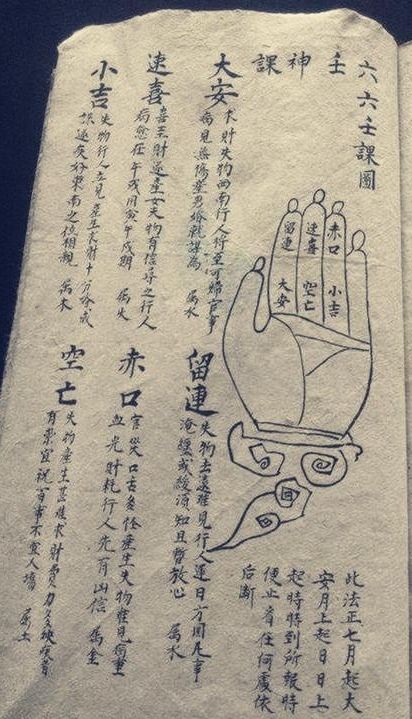 六六壬課圖
壬神課
赤口
小吉
速喜
空亡
留連
大安
大安
求財失物西南行人行至何婦官事
病見無傷產男婚就謀為 屬水
速喜
喜至財運產女失物有信尋之行人
病愈在午戌寅午戌期 屬火
小吉
失物行人立見產生求財十分
速疾好東南之位相親 屬木
留連
失物去遠難見行人連日方回尾事
淹纏或緩須知且暫放心 屬水
赤口
官災口舌多怪產生失物難見病重
血光財耗行人先有凶信 屬金
空亡
失物產生甚難求財費力多
有祟宜祝百事不宜人壙 屬土
此法正七月起大
安月上起日日上
起時時到所報時
便止看在何處依
后斷